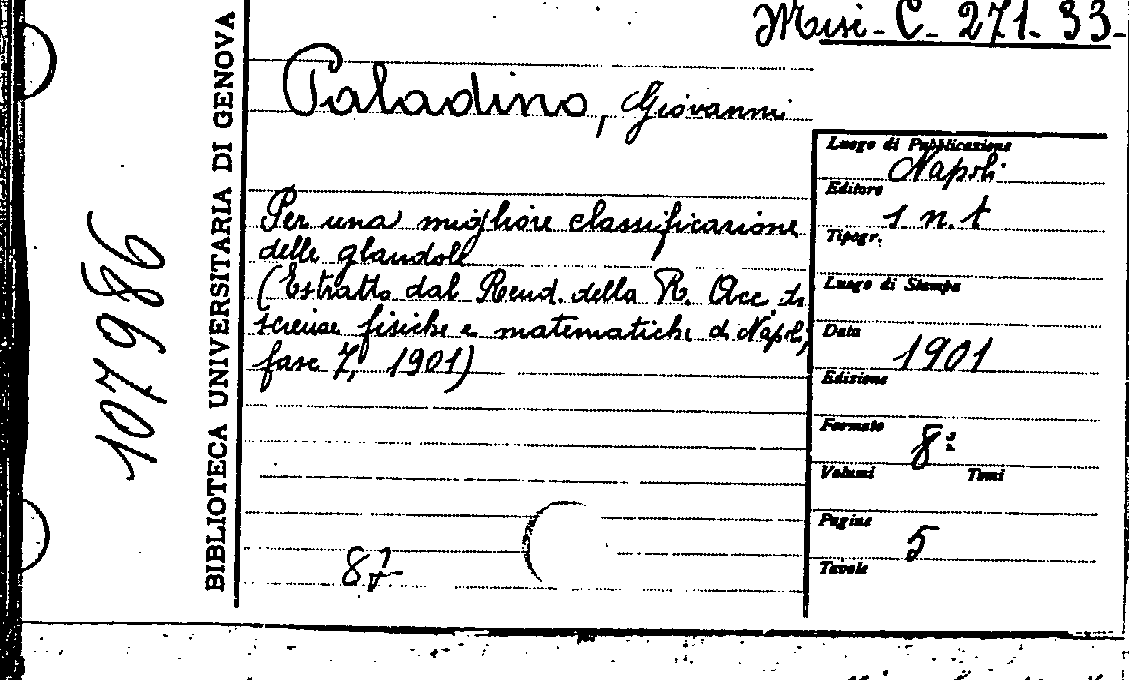 Misc. C. 271. 33
Paladino, Giovanni
Per una migliore classificazione
delle glandole
(Estratto dal Rend. della R. Acc. di
scienze fisiche e matematiche di Napoli,
fasc 7, 1901)
87
BIBLIOTECA UNIVERSITARIA DI GENOVA
107986
Luogo di Pubblicazione
Napoli
Editore
s. n. t
Tipogr.
Luogo di Stampa
Data
1901
Edizione
Formato
8°
Volumi Tomi
Pagine
5
Tavole